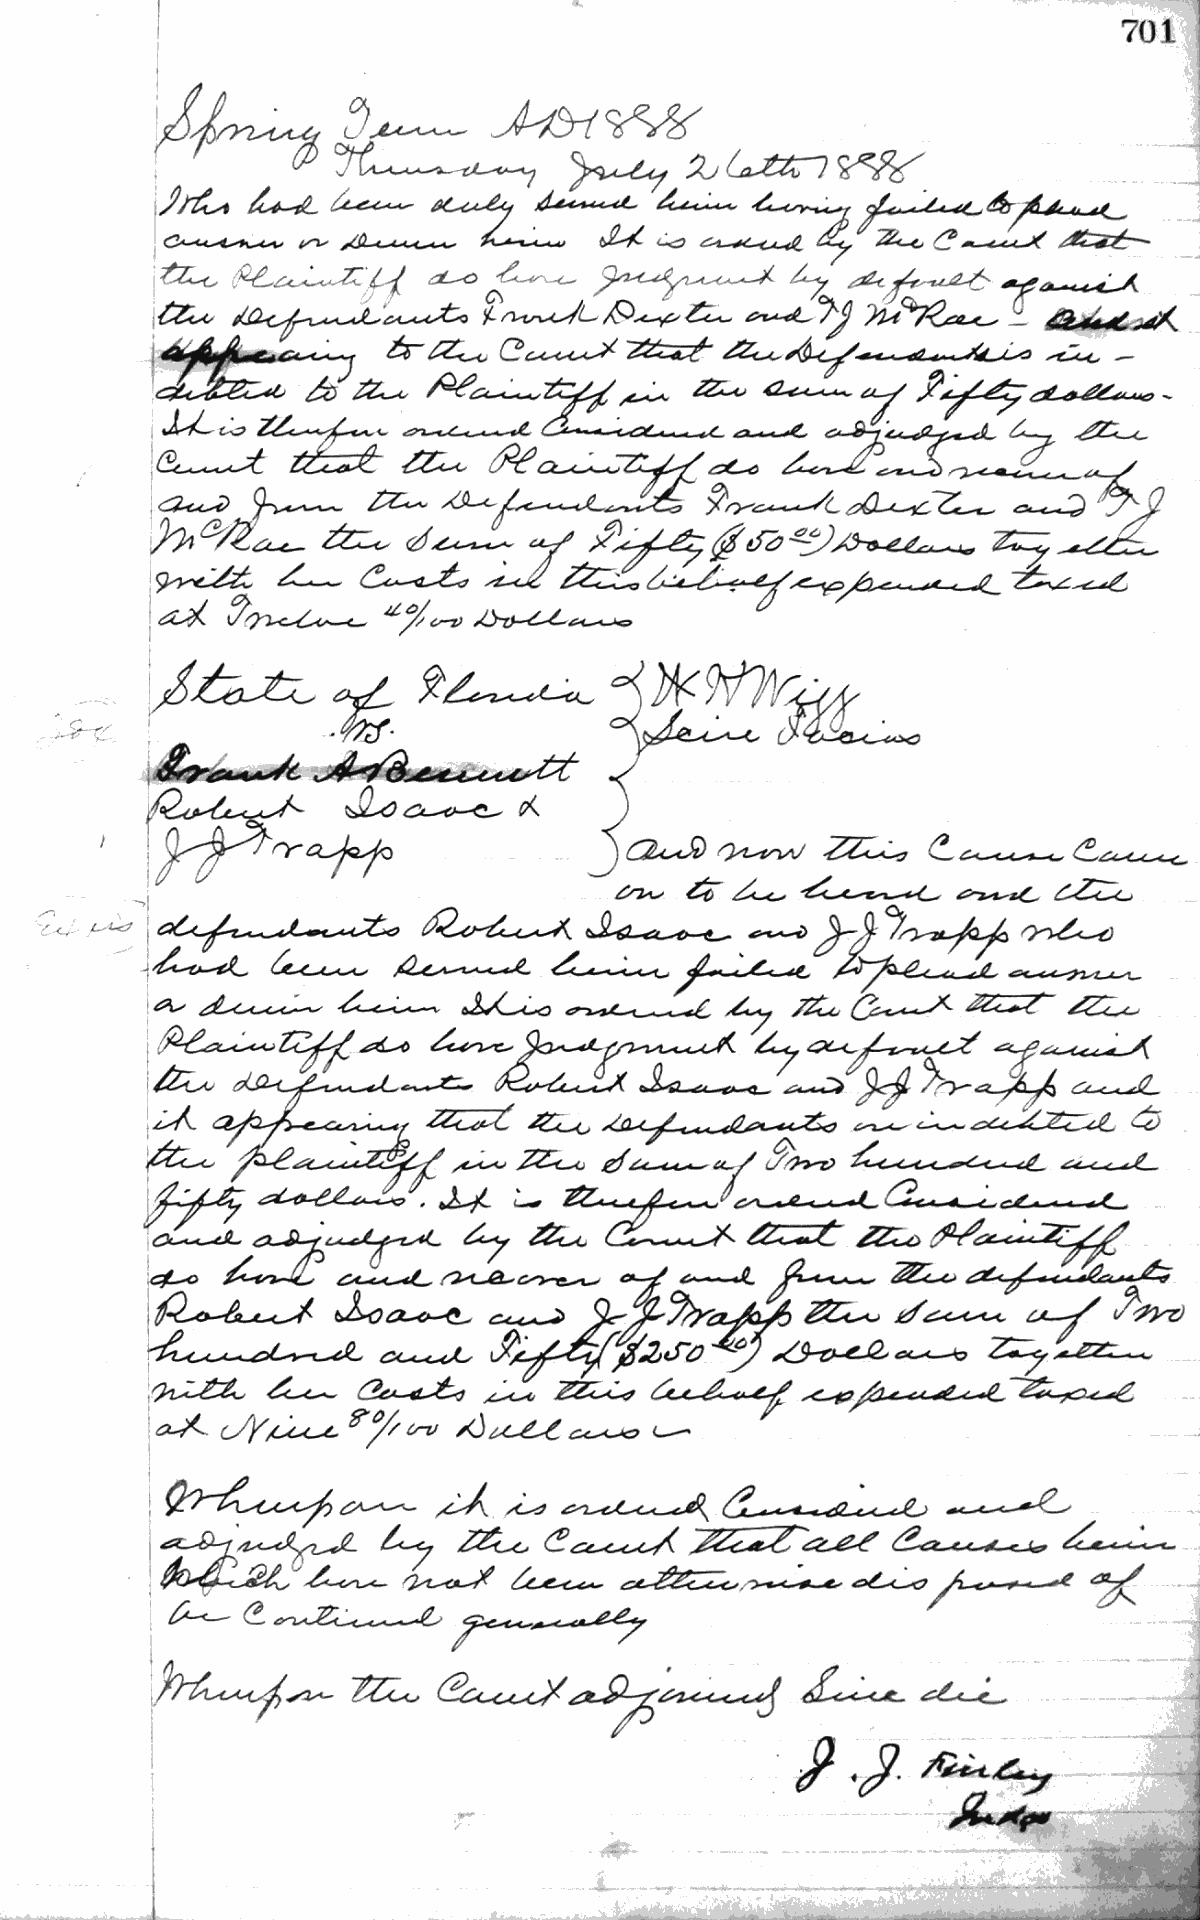 701
Spring Term AD 1888
Thursday July 26th 1888
Who had been duly served herein having failed to plead
answer or demur herein It is ordered by the Court that
the Plaintiff do have Judgment by default against
the Defendants Frank Dexter and T J McRae - and it
appearing to the Court that the Defendants is in-
debted to the Plaintiff in the sum of Fifty dollars-
It is therefore ordered Considered and adjudged by the
Court that the Plaintiff do have and recover of
and from the Defendants Frank Dexter and T J
McRae the Sum of Fifty ($50 00) Dollars together
with her Costs in this behalf expended taxed
at Twelve 40/100 Dollars
State of Florida
vs.
Frank A Bennett
Robert Isaac &
J J Trapp
Scire Facias
And now this Cause Came
on to be heard and the
defendants Robert Isaac and J J Trapp who
had been served herein failed to plead answer
or demur herein It is ordered by the Court that the
Plaintiff do have Judgment by default against
the Defendants Robert Isaac and J J Trapp and
it appearing that the Defendants are indebted to
the plaintiff in the Sum of Two hundred and
fifty dollars. It is therefore ordered Considered
and adjudged by the Court that the Plaintiff
do have and recover of and from the defendants
Robert Isaac and J J Trapp the Sum of Two
hundred and Fifty ($250 00) Dollars together
with her Costs in this behalf expended taxed
at Nine 80/100 Dollars
Whereupon it is ordered Considered and
adjudged by the Court that all Causes herein
Which have not been otherwise disposed of
be Continued generally
Whereupon the Court adjourned Sine die
J. J. Finley
Judge